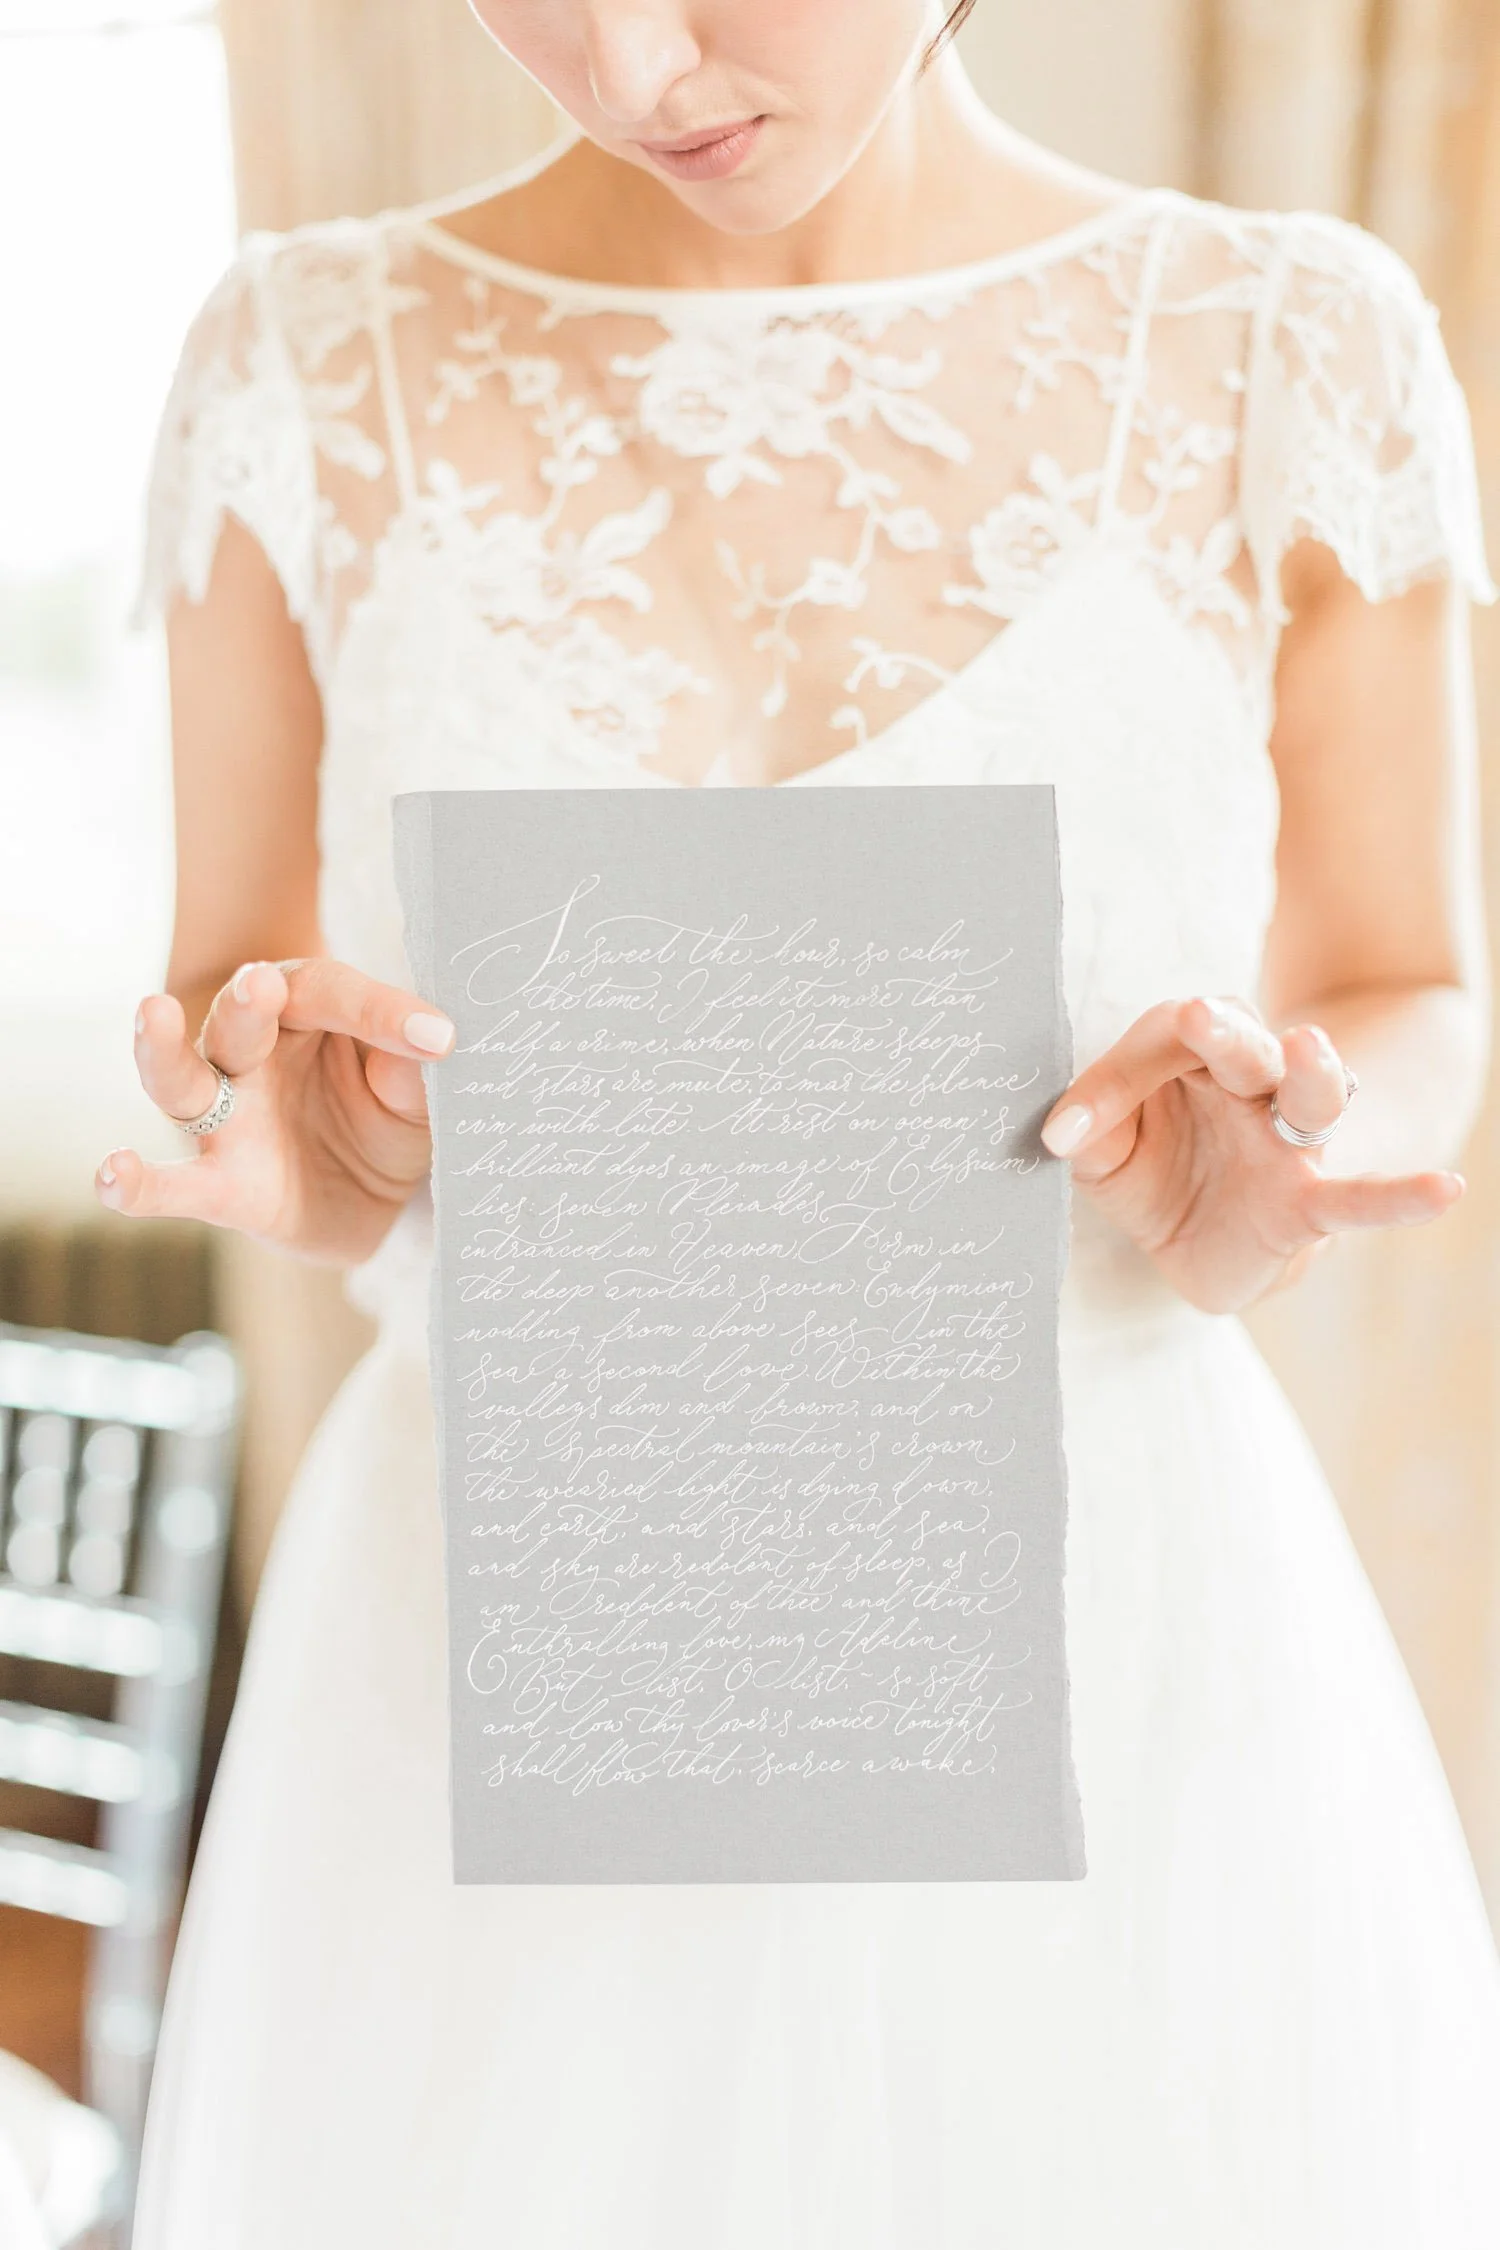 So sweet the hour, so calm
the time, I feel it more than
half a crime, when Nature sleeps
and stars are mute, to mar the silence
ev'n with lute. At rest on ocean's
brilliant dyes an image of Elysium
lies: seven Pleiades
entranced in Heaven, Form in
the deep another seven: Endymion
nodding from above sees in the
sea a second love. Within the
valleys dim and brown, and on
the spectral mountain's crown,
the wearied light is dying down,
and earth, and stars, and sea,
and sky are redolent of sleep, as I
am redolent of thee and thine
Enthralling love, my Adeline
But list, O list, - so soft
and low thy lover's voice tonight
shall flow that, scarce awake,